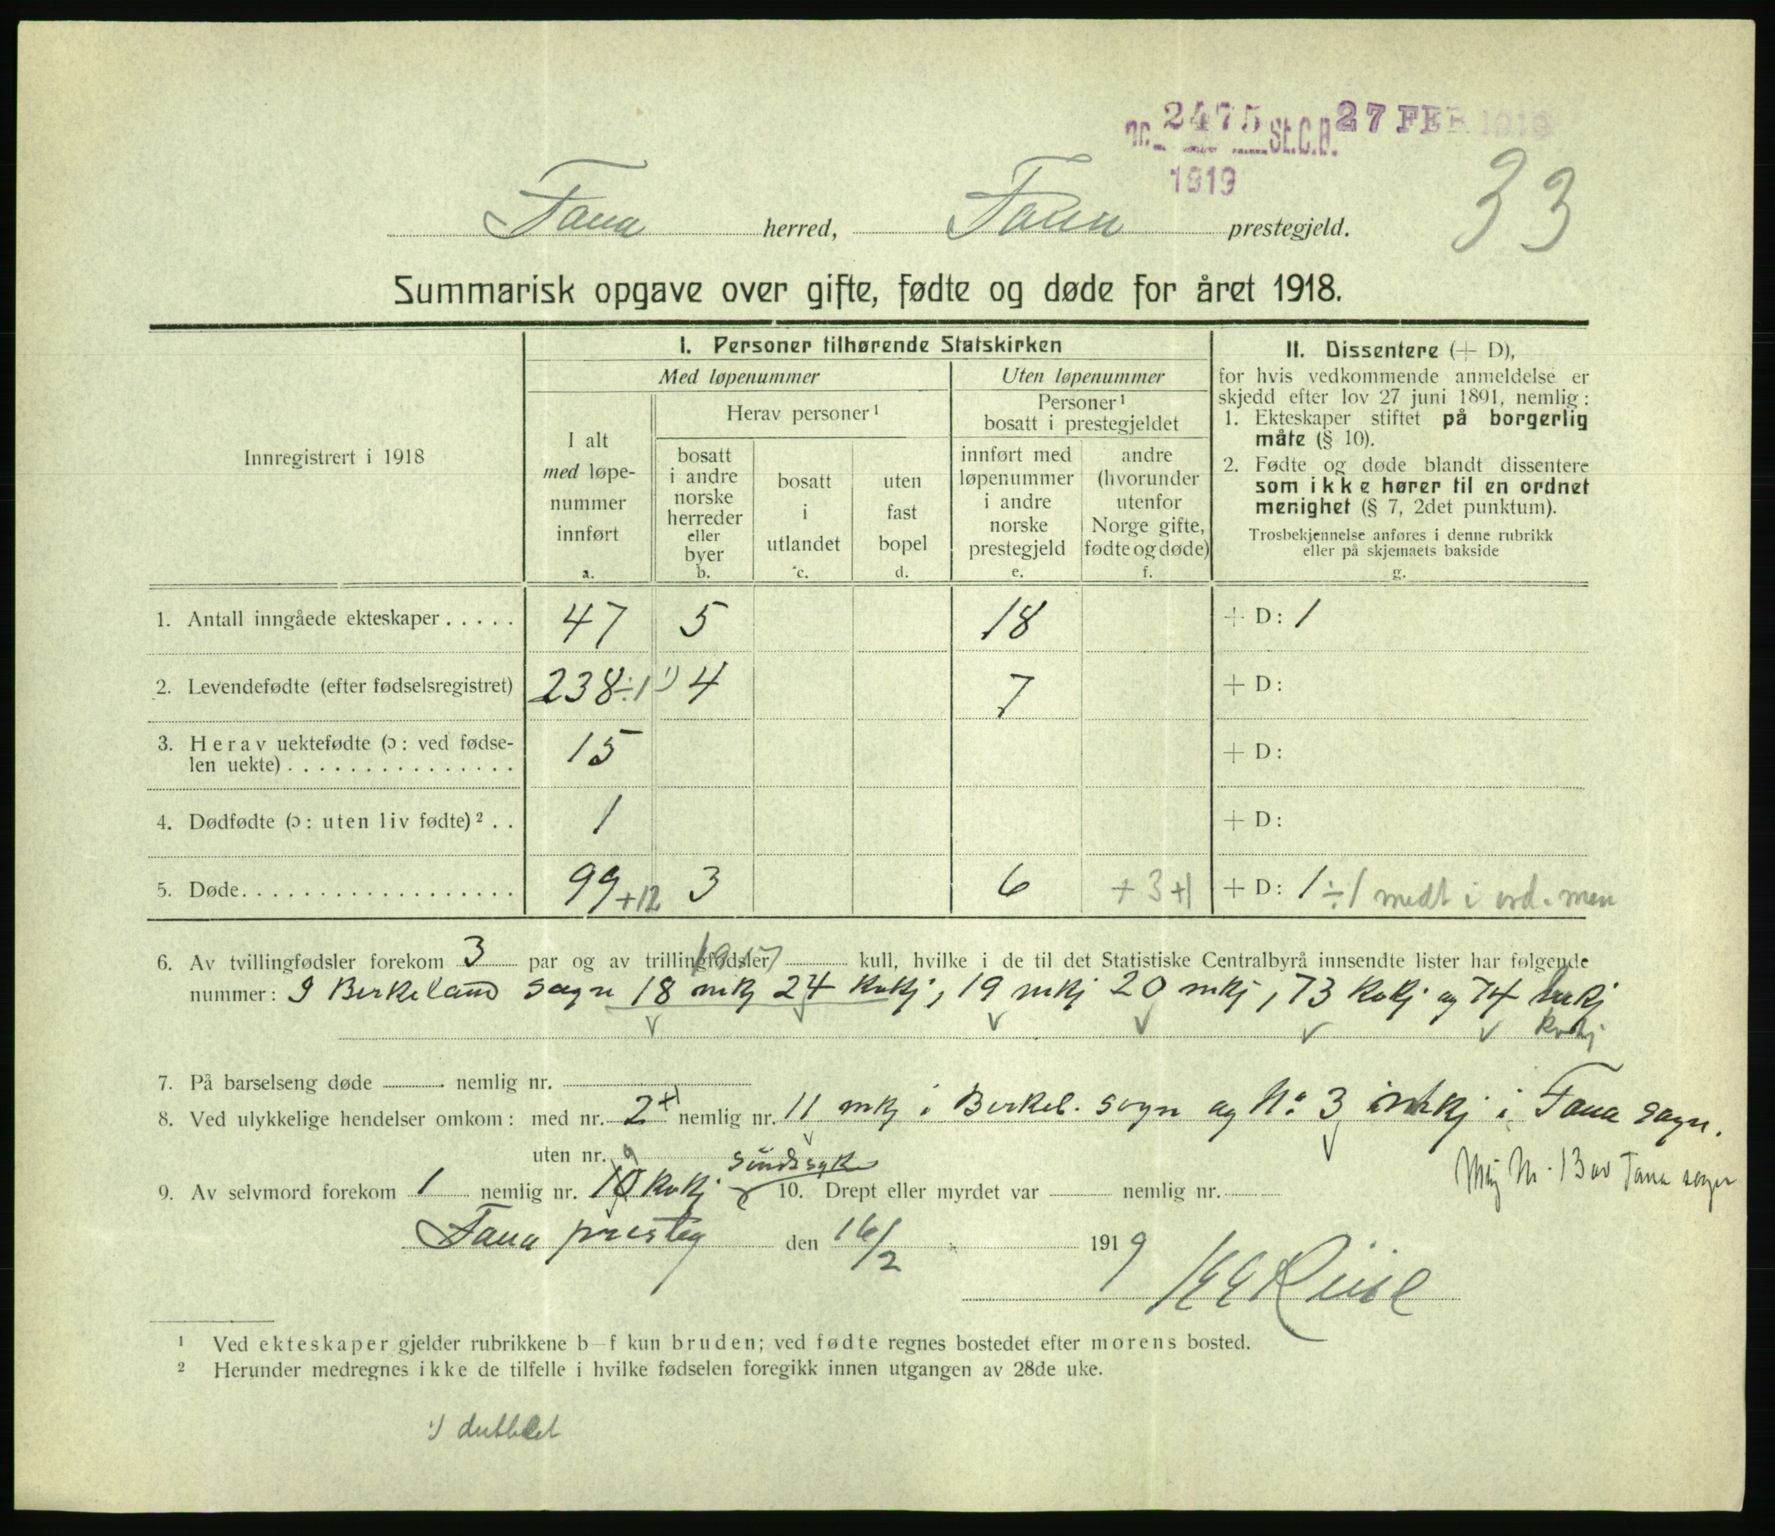 nr. 2475 St.C.B. 27 FEB 1919
1919
33
Fana herred, Fana prestegjeld.
Summarisk opgave over gifte, fødte og døde for året 1918.
Innregistrert i 1918
I. Personer tilhørende Statskirken
Med løpenummer
Uten løpenummer
I alt
med løpe-
nummer
innført
a.
Herav personer¹
bosatt
i andre
norske
herreder
eller
byer
b.
bosatt
i
utlandet
c.
uten
fast
bopel
d.
Personer¹
bosatt i prestegjeldet
innført med
løpenummer
i andre
norske
prestegjeld
e.
andre
(hvorunder
utenfor
Norge gifte,
fødte og døde)
f.
II. Dissentere (+ D),
for hvis vedkommende anmeldelse er
skjedd efter lov 27 juni 1891, nemlig:
1. Ekteskaper stiftet på borgerlig
måte (§ 10).
2. Fødte og døde blandt dissentere
som ikke hører til en ordnet
menighet (§ 7, 2det punktum).
Trosbekjennelse anføres i denne rubrikk
eller på skjemaets bakside
g.
1. Antall inngåede ekteskaper . . . . . 47 5 18 + D: 1
2. Levendefødte (efter fødselsregistret) 238 ÷1 ¹) 4 7 + D:
3. Herav uektefødte (ɔ: ved fødse-
len uekte) . . . . . . . . . . . . . . . 15 + D:
4. Dødfødte (ɔ: uten liv fødte)² . . 1 + D:
5. Døde. . . . . . . . . . . . . . . . . . 99 +12 3 6 + 3 +1 + D: 1 ÷1 medt i ord. men
6. Av tvillingfødsler forekom 3 par og av trillingfødsler kull, hvilke i de til det Statistiske Centralbyrå innsendte lister har følgende
nummer: I Birkeland sogn 18 mkj 24 kvkj, 19 mkj 20 mkj, 73 kvkj og 74 mkj
kvkj
7. På barselseng døde nemlig nr.
8. Ved ulykkelige hendelser omkom: med nr. 2 +1 nemlig nr. 11 mkj i Birkel. sogn og No 3 mkj i Fana sogn.
uten nr.
Mkj Nr. 13 av Fana sogn
9
sindssyk
9. Av selvmord forekom 1 nemlig nr. 10 kvkj 10. Drept eller myrdet var nemlig nr.
Fana presteg den 16/2 1919
Riise
¹ Ved ekteskaper gjelder rubrikkene b–f kun bruden; ved fødte regnes bostedet efter morens bosted.
² Herunder medregnes ikke de tilfelle i hvilke fødselen foregikk innen utgangen av 28de uke.
¹) dubblet